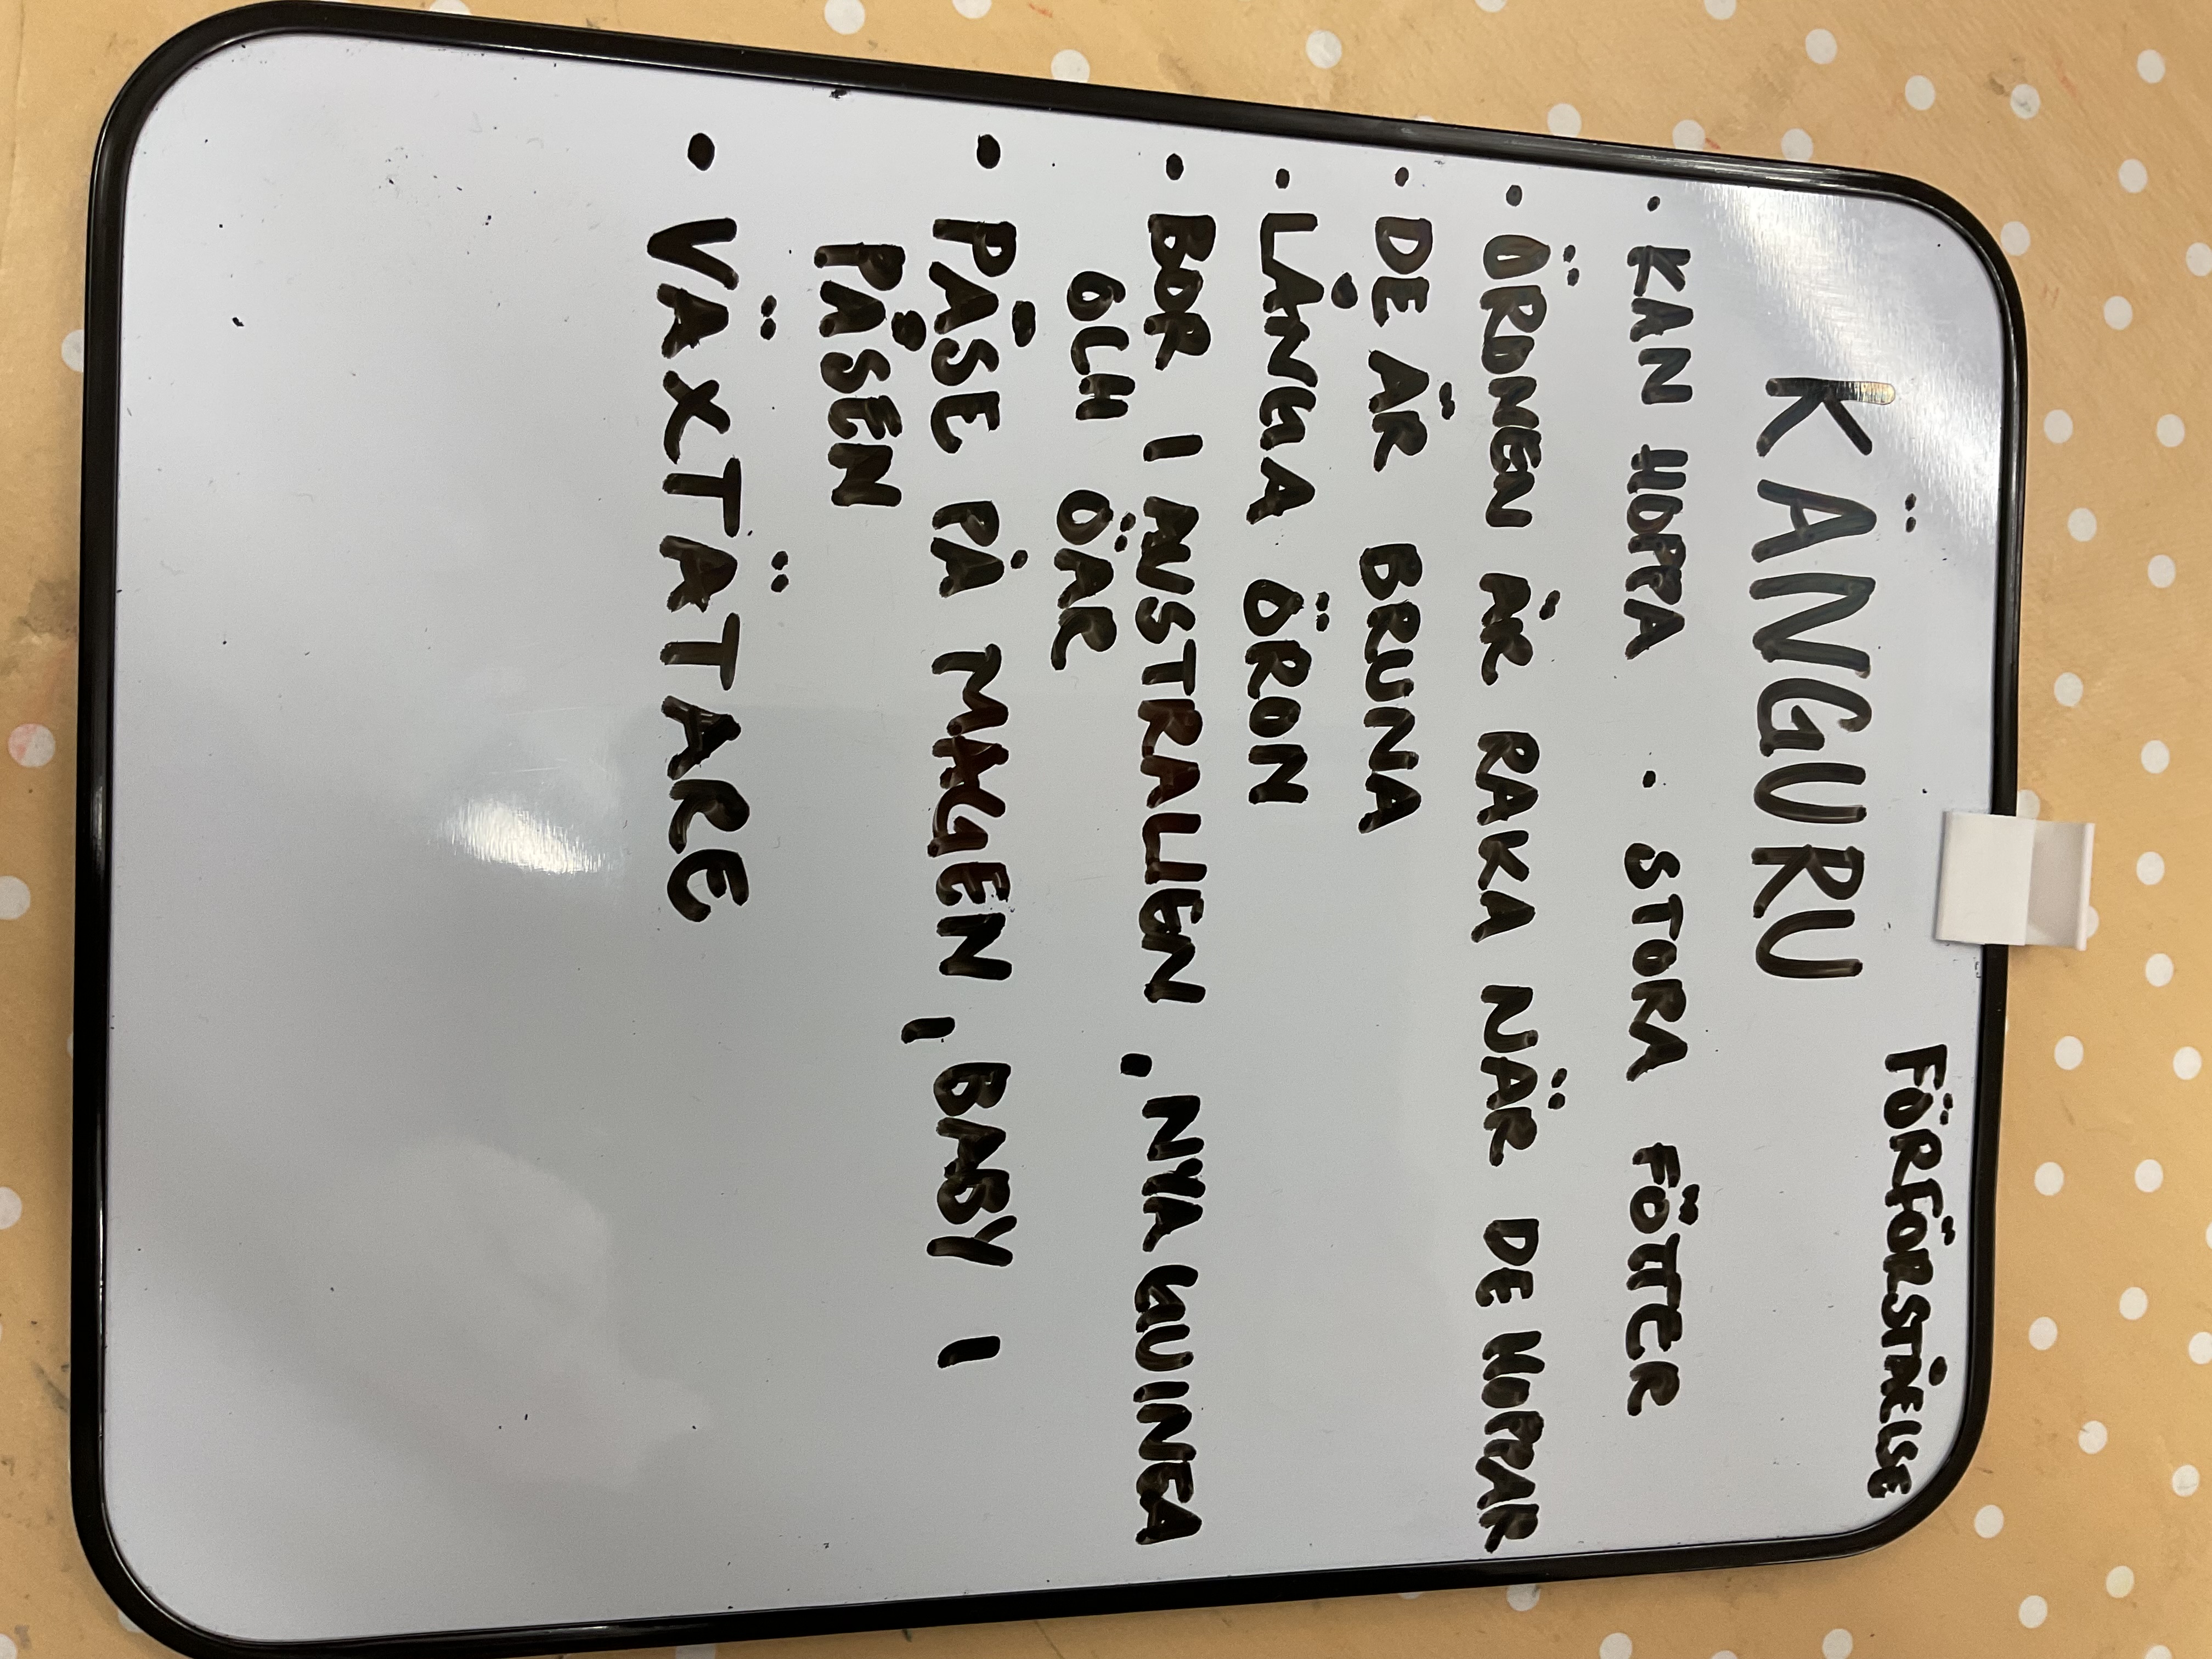 FÖRFÖRSTÅELSE
KÄNGURU
• KAN HOPPA • STORA FÖTTER
• ÖRONEN ÄR RAKA NÄR DE HOPPAR
• DE ÄR BRUNA
• LÅNGA ÖRON
• BOR I AUSTRALIEN, NYA GUINEA
ÖCH ÖAR
• PÅSE PÅ MAGEN, BABY I
PÅSEN
• VÄXTÄTARE